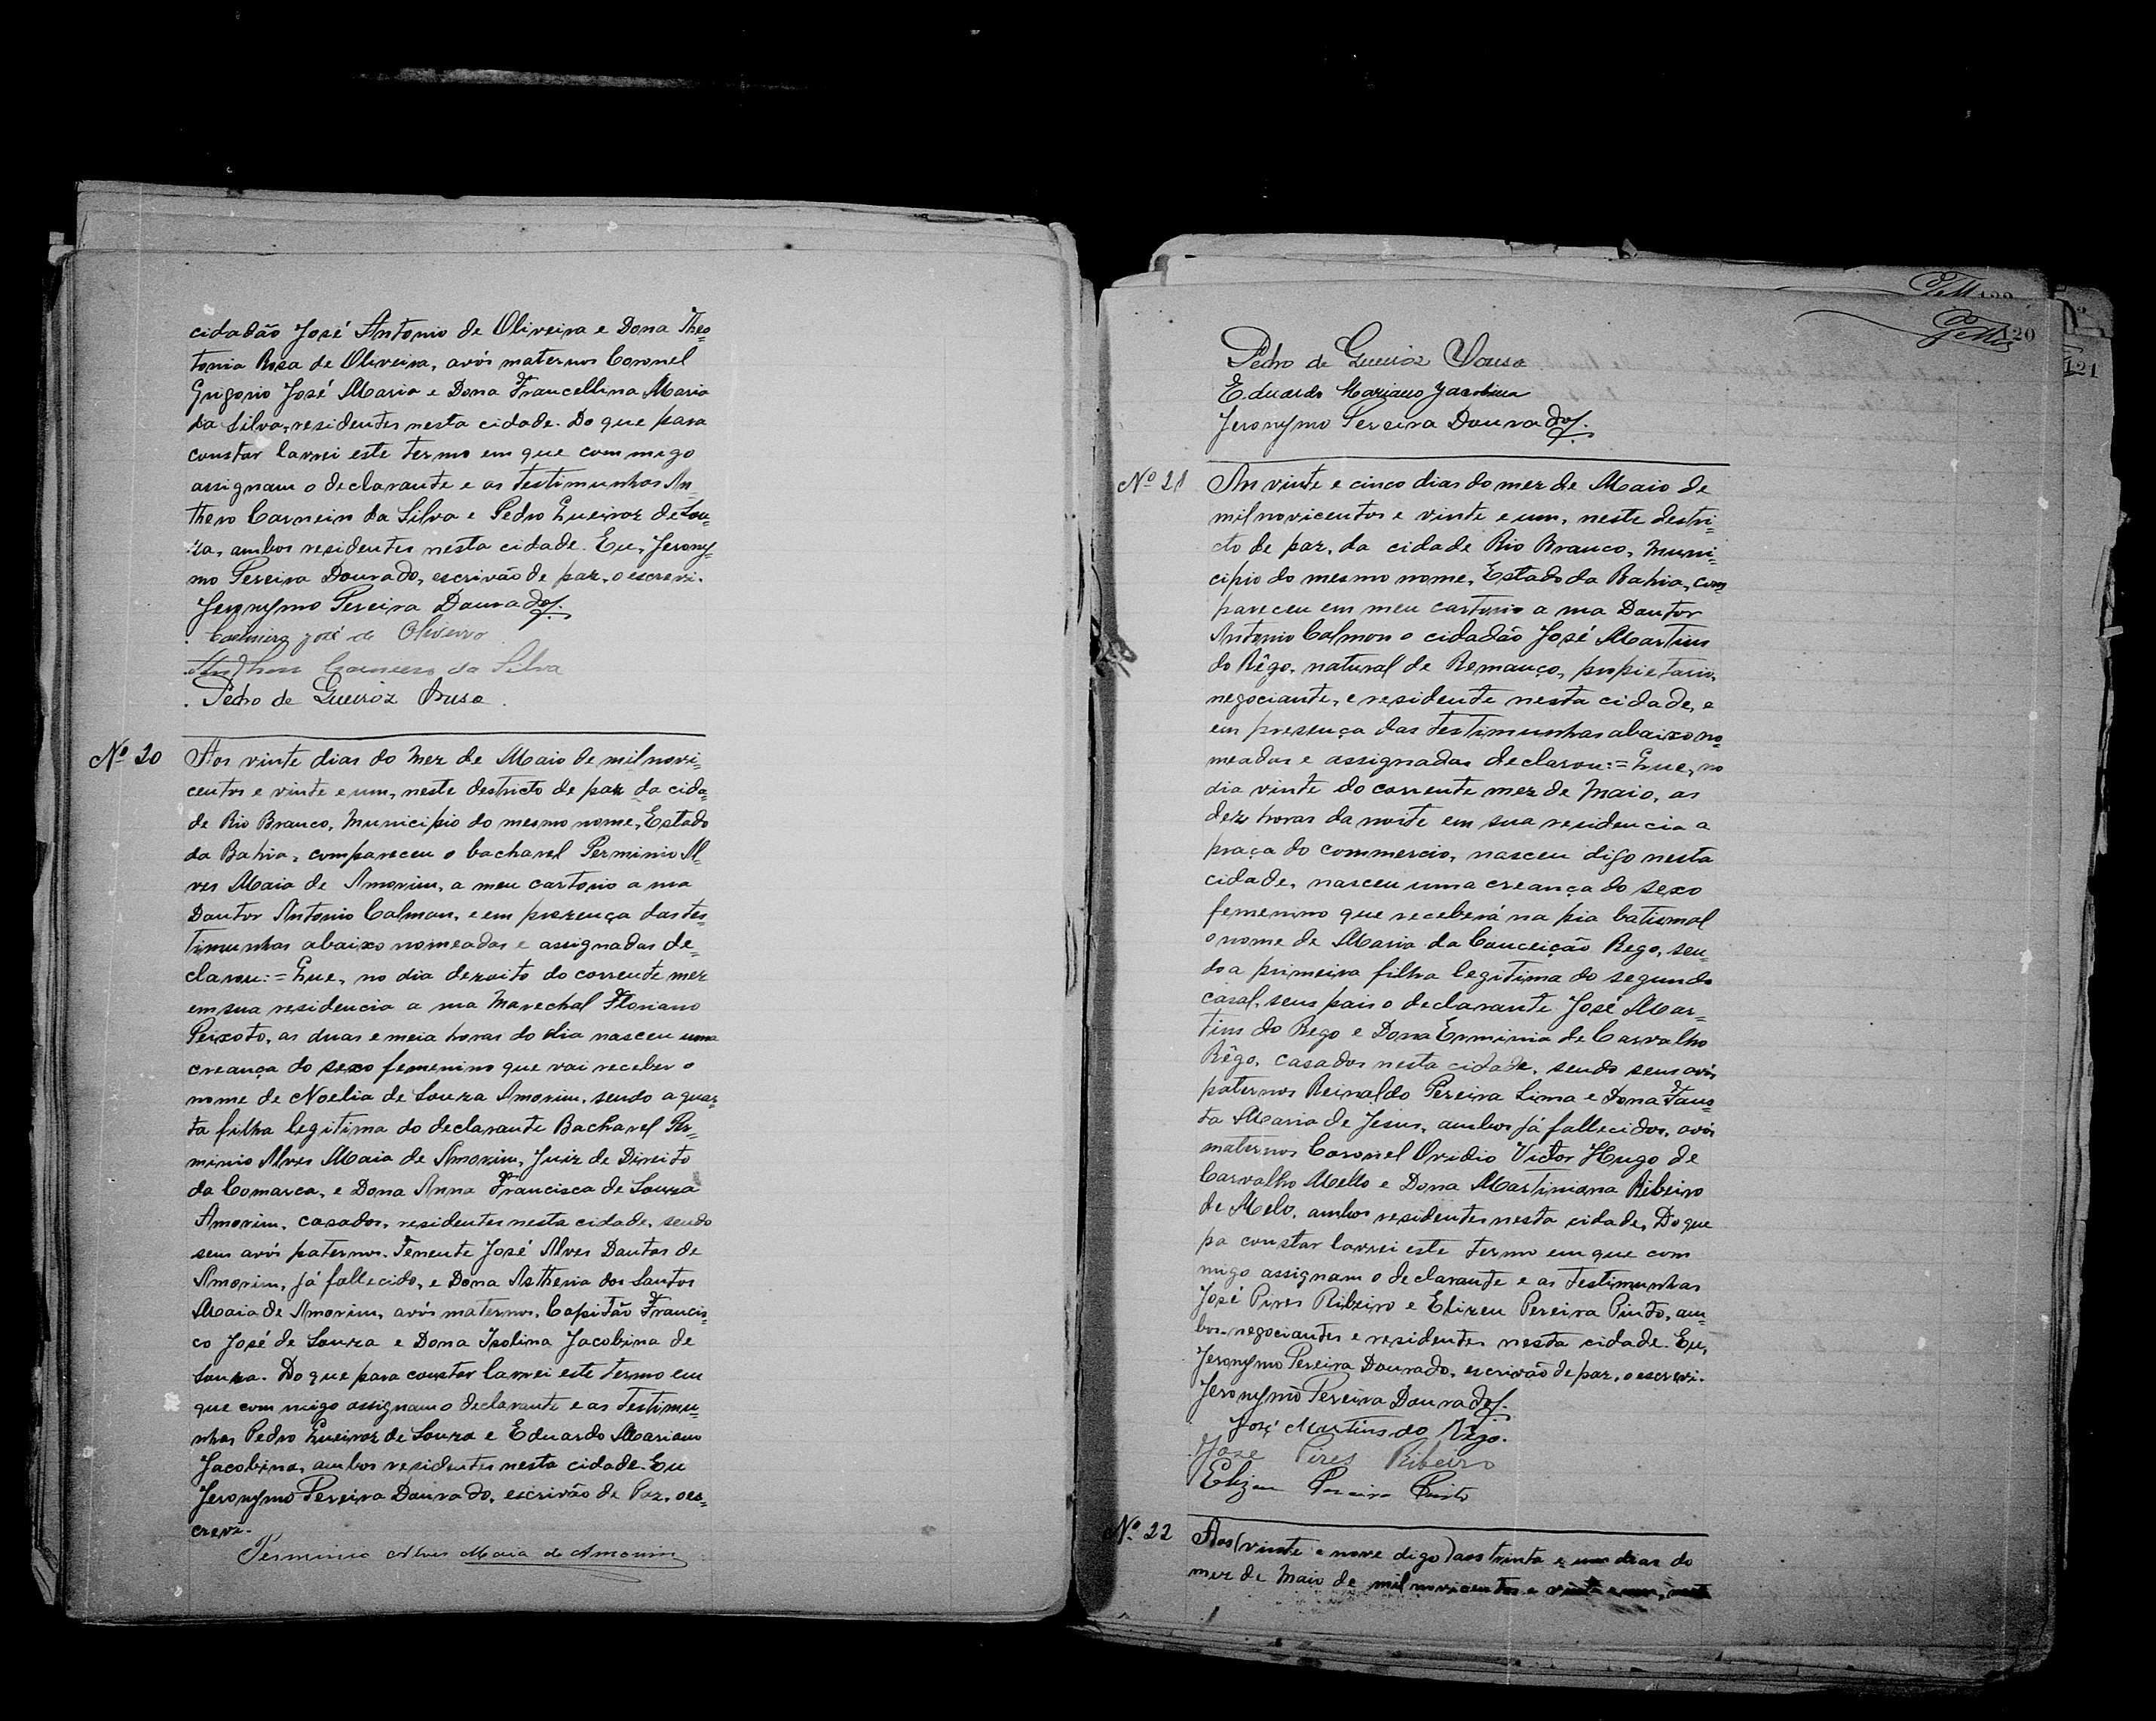 cidadão José Antonio de Oliveira e Dona Theo=
tonia Rosa de Oliveira, avós maternos Coronel
Grigorio José Maria e Dona Francellina Maria
da Silva, residentes nesta cidade. Do que para
constar lavrei este termo em que com migo
assignam o declarante e as testimunhas An=
thero Carneiro da Silva e Pedro Queiroz de Sou=
za, ambos residentes nesta cidade. Eu, Jerony=
mo Pereira Dourado, escrivão de paz, o escrevi.
Jeronymo Pereira Dourado
Casimiro José de Oliveira
Anthero Carneiro da Silva
Pedro de Queiroz Sousa
Nº 20 Aos vinte dias do mez de Maio de mil novi=
centos e vinte e um, neste destricto de paz da cida=
de Rio Branco, Municipio do mesmo nome, Estado
da Bahia, compareceu o bacharel Perminio Al=
ves Maia de Amorim, a meu cartorio a rua
Doutor Antonio Calmon, e em prezença das tes=
timunhas abaixo nomeadas e assignadas de=
clarou:= Que, no dia dezoito do corrente mez
em sua residencia a rua Marechal Floriano
Peixoto, as duas e meia horas do dia nasceu uma
creança do sexo femenino que vai receber o
nome de Noelia de Souza Amorim, sendo a quar=
ta filha legitima do declarante Bacharel Per=
minio Alves Maia de Amorim, Juiz de Direito
da Comarca, e Dona Anna Francisca de Souza
Amorim, casados, residentes nesta cidade, sendo
seus avós paternos. Tenente José Alves Dantas de
Amorim, já fallecido, e Dona Astheria dos Santos
Maia de Amorim, avós maternos, Capitão Francis=
co José de Souza e Dona Isolina Jacobina de
Souza. Do que para constar lavrei este termo em
que com migo assignam o declarante e as testimu=
nhas Pedro Queiroz de Souza e Eduardo Mariano
Jacobina, ambos residentes nesta cidade. Eu
Jeronymo Pereira Dourado, escrivão de Paz, o es=
crevi.
Perminio Alves Maia de Amorim
120
121
Pedro de Queiroz Sousa
Eduardo Mariano Jacobina
Jeronymo Pereira Dourado
Nº 21 Aos vinte e cinco dias do mez de Maio de
mil novicentos e vinte e um, neste destri=
cto de paz, da cidade Rio Branco, Muni=
cipio do mesmo nome, Estado da Bahia, com
pareceu em meu cartorio a rua Doutor
Antonio Calmon o cidadão José Martins
do Rêgo, natural de Remanço, propietario,
negociante, e residente nesta cidade, e
em presença das testimunhas abaixo no=
meadas e assignadas declarou:= Que, no
dia vinte do corrente mez de Maio, as
dez horas da noite em sua residencia a
praça do commercio, nasceu digo nesta
cidade, nasceu uma creança do sexo
femenino que receberá na pia batismal
o nome de Maria da Conceição Rego, sen=
do a primeira filha legitima do segundo
casal, seus pais o declarante José Mar=
tins do Rego e Dona Erminia de Carvalho
Rêgo, casados nesta cidade, sendo seus avós
paternos Reinaldo Pereira Lima e Dona Faus=
ta Maria de Jesus, ambos já fallecidos, avós
maternos Coronel Ovidio Victor Hugo de
Carvalho Mello e Dona Martiniana Ribeiro
de Melo, ambos residentes nesta cidade, Do que
pa constar lavrei este termo em que com
migo assignam o declarante e as testimunhas
José Pires Ribeiro e Elizeu Pereira Pinto, am=
bos negociantes e residentes nesta cidade. Eu,
Jeronymo Pereira Dourado, escrivão de paz, o escrevi.
Jeronymo Pereira Dourado
José Martins do Rêgo.
Jose Pires Ribeiro
Elizeu Pereira Pinto
Nº 22 Aos (vinte e nove digo) aos trinta e um dias do
mez de Maio de mil novicentos e vinte e um, neste